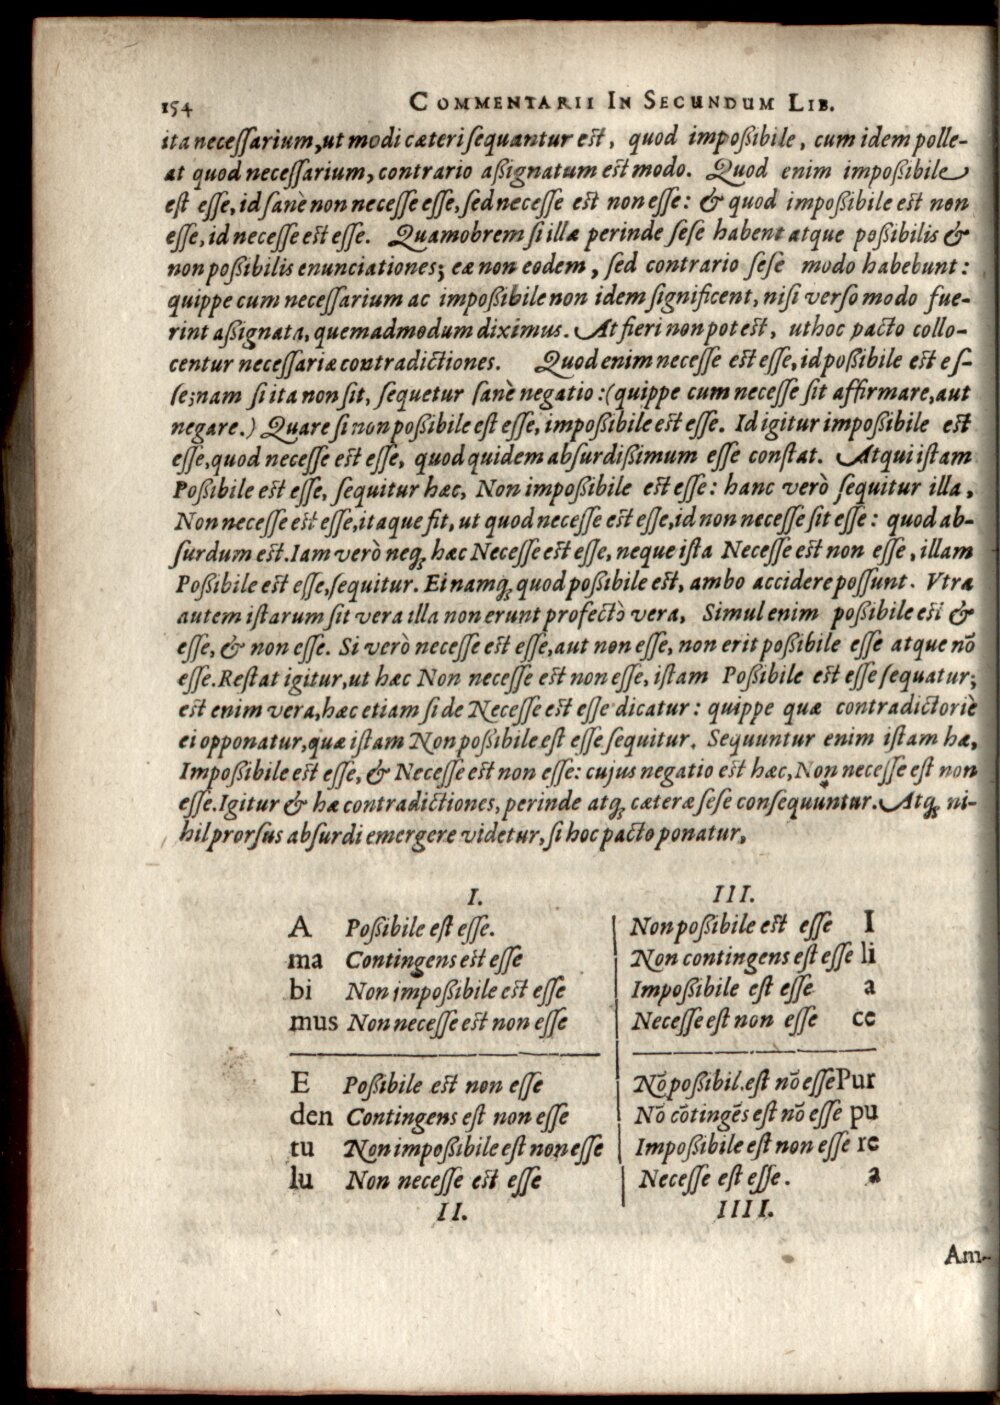 154 COMMENTARII IN SECUNDUM LIB.
ita neceſſarium, ut modi cæteri ſequantur est, quod impoßibile, cum idem polle-
at quod neceſſarium, contrario aßignatum est modo. Quod enim impoßibile
eſt eſſe, id ſanè non neceſſe eſſe, ſed neceſſe est non eſſe: & quod impoßibile est non
eſſe, id neceſſe est eſſe. Quamobrem ſi illæ perinde ſeſe habent atque poßibilis &
non poßibilis enunciationes; eæ non eodem, ſed contrario ſeſe modo habebunt:
quippe cum neceſſarium ac impoßibile non idem ſignificent, niſi verſo modo fue-
rint aßignata, quemadmodum diximus. At fieri non poteſt, ut hoc pacto collo-
centur neceſſariæ contradictiones. Quod enim neceſſe est eſſe, id poßibile est eſ-
ſe; nam ſi ita non ſit, ſequetur ſanè negatio: (quippe cum neceſſe ſit affirmare, aut
negare.) Quare ſi non poßibile eſt eſſe, impoßibile est eſſe. Id igitur impoßibile est
eſſe, quod neceſſe est eſſe, quod quidem abſurdißimum eſſe conſtat. Atqui iſtam
Poßibile est eſſe, ſequitur hæc, Non impoßibile est eſſe: hanc verò ſequitur illa,
Non neceſſe est eſſe, itaque fit, ut quod neceſſe est eſſe, id non neceſſe ſit eſſe: quod ab-
ſurdum est. Iam verò neq; hæc Neceſſe est eſſe, neque iſta Neceſſe est non eſſe, illam
Poßibile est eſſe, ſequitur. Ei namq; quod poßibile est, ambo accidere poſſunt. Vtra
autem iſtarum ſit vera illa non erunt profectò vera, Simul enim poßibile est &
eſſe, & non eſſe. Si verò neceſſe est eſſe, aut non eſſe, non erit poßibile eſſe atque nō
eſſe. Reſtat igitur, ut hæc Non neceſſe est non eſſe, iſtam Poßibile est eſſe ſequatur;
est enim vera, hæc etiam ſi de Neceſſe est eſſe dicatur: quippe quæ contradictoriè
ei opponatur, quæ iſtam Non poßibile eſt eſſe ſequitur. Sequuntur enim iſtam hæ,
Impoßibile est eſſe, & Neceſſe est non eſſe: cujus negatio est hæc, Non neceſſe eſt non
eſſe. Igitur & hæ contradictiones, perinde atq; cæteræ ſeſe conſequuntur. Atq; ni-
hil prorſus abſurdi emergere videtur, ſi hoc pacto ponatur,
I. III.
A Poßibile eſt eſſe. Non poßibile est eſſe I
ma Contingens est eſſe Non contingens est eſſe li
bi Non impoßibile est eſſe Impoßibile eſt eſſe a
mus Non neceſſe est non eſſe Neceſſe eſt non eſſe ce
E Poßibile est non eſſe Nō poßibil. eſt nō eſſe Pur
den Contingens eſt non eſſe Nō cōtingēs eſt nō eſſe pu
tu Non impoßibile eſt non eſſe Impoßibile eſt non eſſe re
lu Non neceſſe est eſſe Neceſſe eſt eſſe. a
II. IIII.
Am-